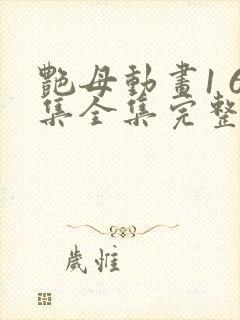 艷母動畫1 6
集全集完整
歲惟